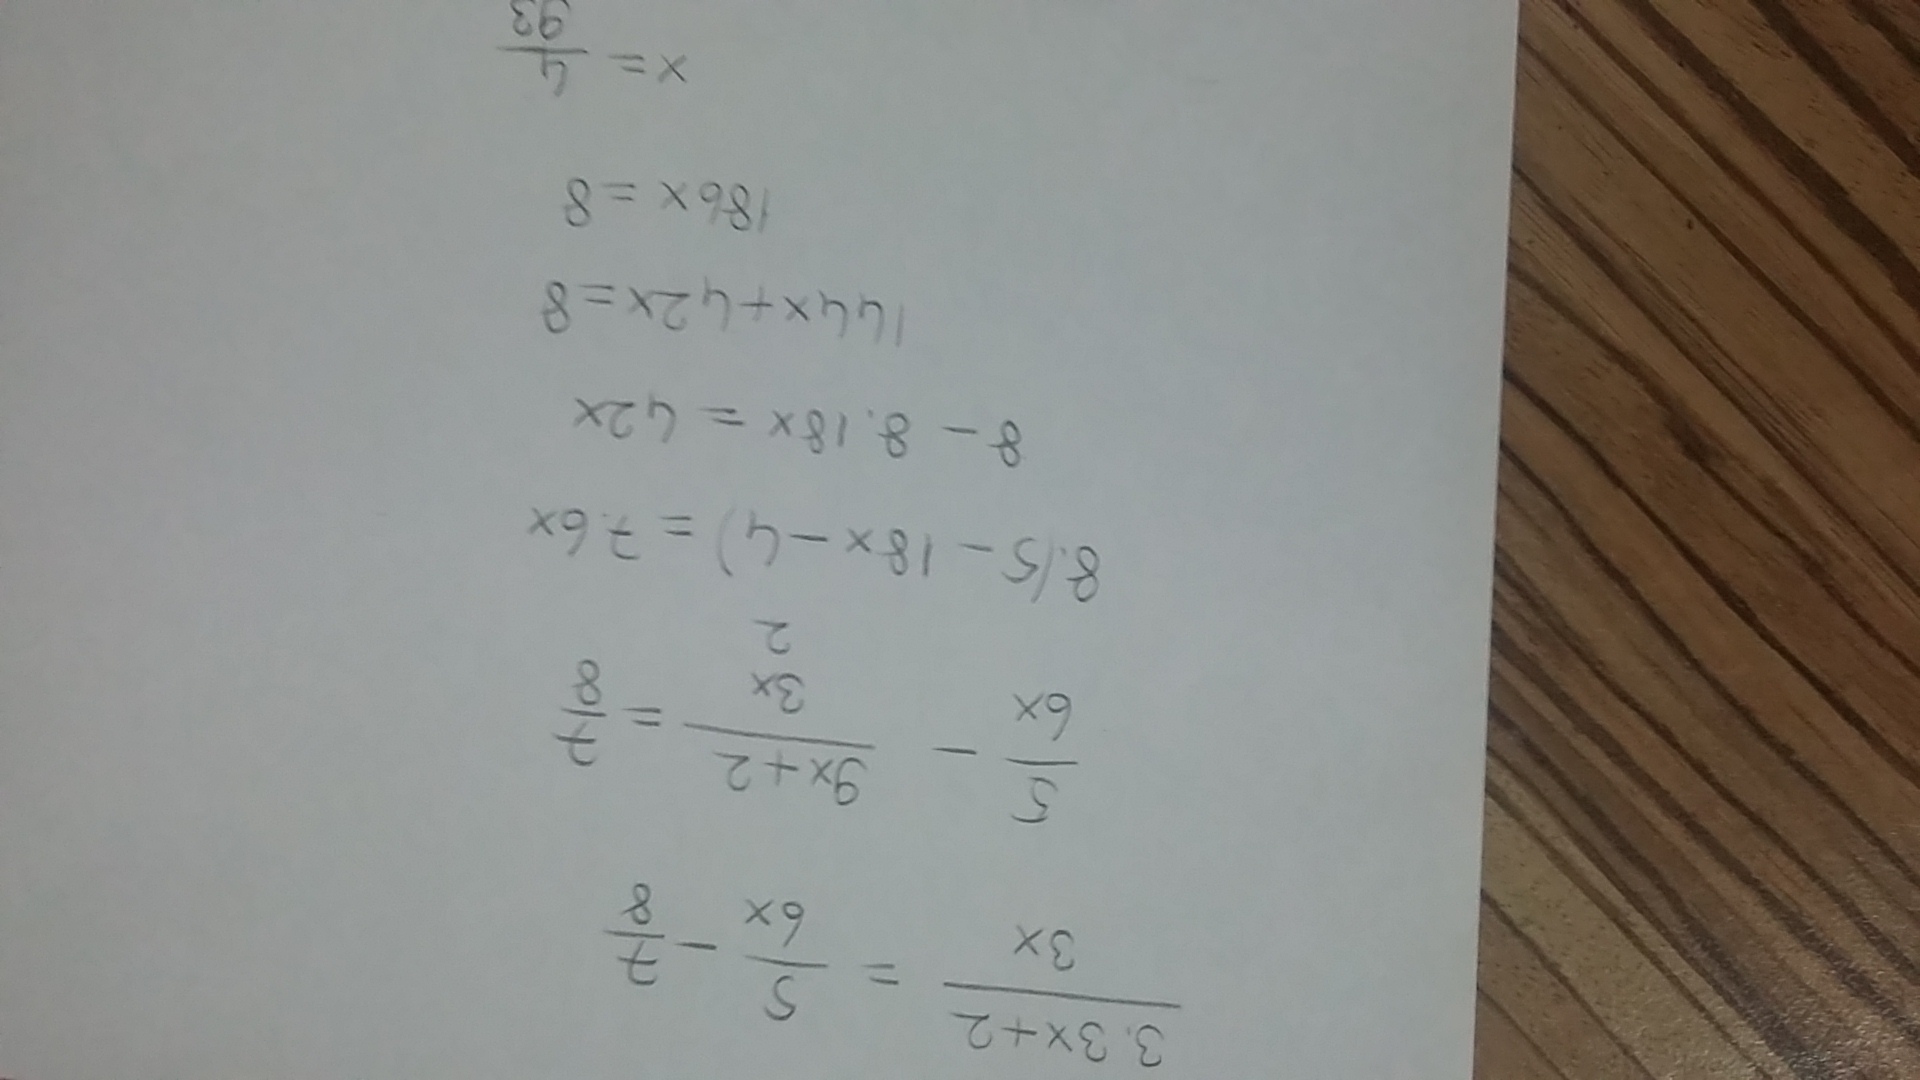 3.3x+2 / 3x = 5 / 6x - 7 / 8
5 / 6x - 9x+2 / 3x = 7 / 8
2
8.(5 - 18x - 4) = 7.6x
8 - 8.18x = 42x
144x + 42x = 8
186x = 8
x = 4 / 93